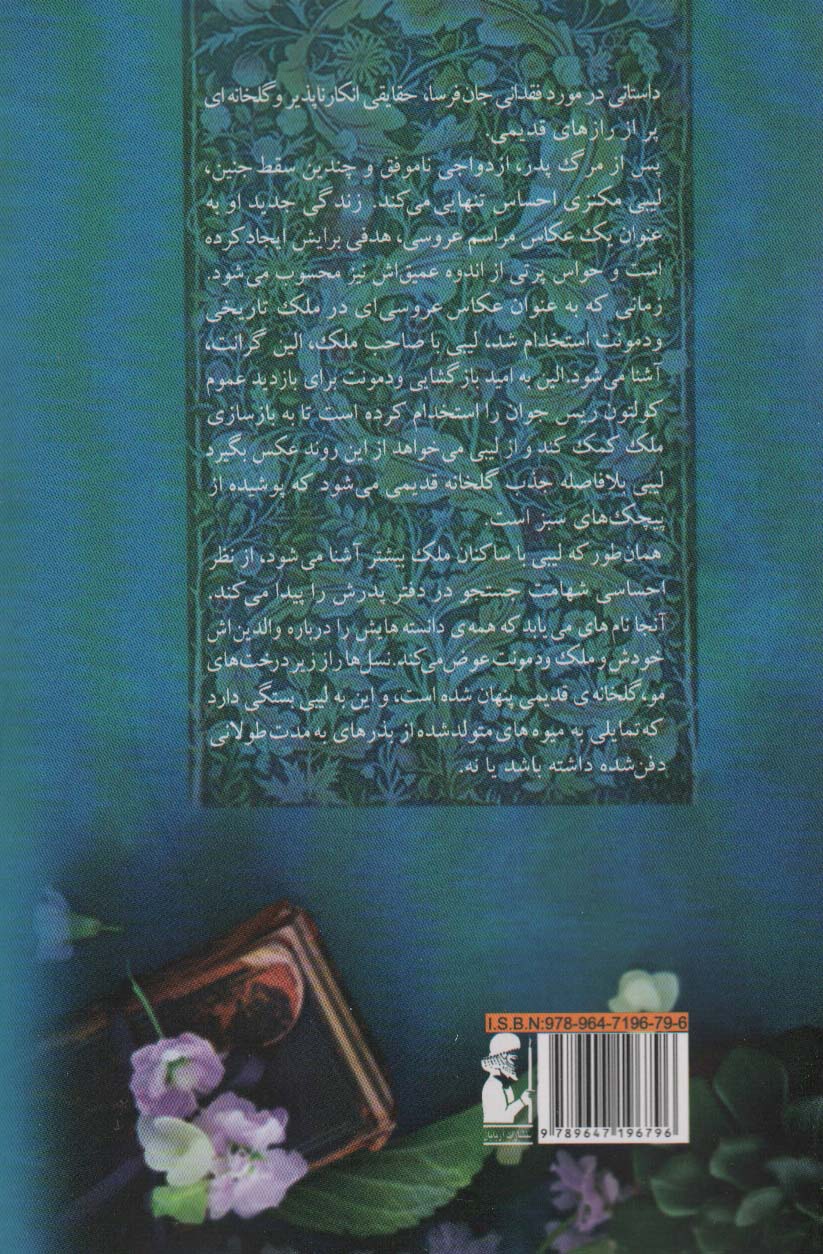 داستانی در مورد فقدانی جان‌فرسا، حقایقی انکارناپذیر و گلخانه‌ای
پر از رازهای قدیمی.
پس از مرگ پدر، ازدواجی ناموفق و چندین سقط جنین،
لیبی مکنزی احساس تنهایی می‌کند. زندگی جدید او به
عنوان یک عکاس مراسم عروسی، هدفی برایش ایجاد کرده
است و حواس پرتی از اندوه عمیق‌اش نیز محسوب می‌شود.
زمانی که به عنوان عکاس عروسی‌ای در ملک تاریخی
ودمونت استخدام شد، لیبی با صاحب ملک، الین گرانت،
آشنا می‌شود.الین به امید بازگشایی ودمونت برای بازدید عموم
کولتون ریس جوان را استخدام کرده است تا به بازسازی
ملک کمک کند و از لیبی می‌خواهد از این روند عکس بگیرد
لیبی بلافاصله جذب گلخانه قدیمی می‌شود که پوشیده از
پیچک‌های سبز است.
همان‌طور که لیبی با ساکنان ملک بیشتر آشنا می‌شود، از نظر
احساسی شهامت جستجو در دفتر پدرش را پیدا می‌کند.
آنجا نام‌های می‌یابد که همه‌ی دانسته هایش را درباره والدین‌اش
خودش و ملک ودمونت عوض می‌کند.نسل‌ها راز زیر درخت‌های
مو، گلخانه‌ی قدیمی پنهان شده است، و این به لیبی بستگی دارد
که تمایلی به میوه های متولدشده از بذرهای به مدت طولانی
دفن‌شده داشته باشد یا نه.
I.S.B.N:978-964-7196-79-6
9 789647 196796